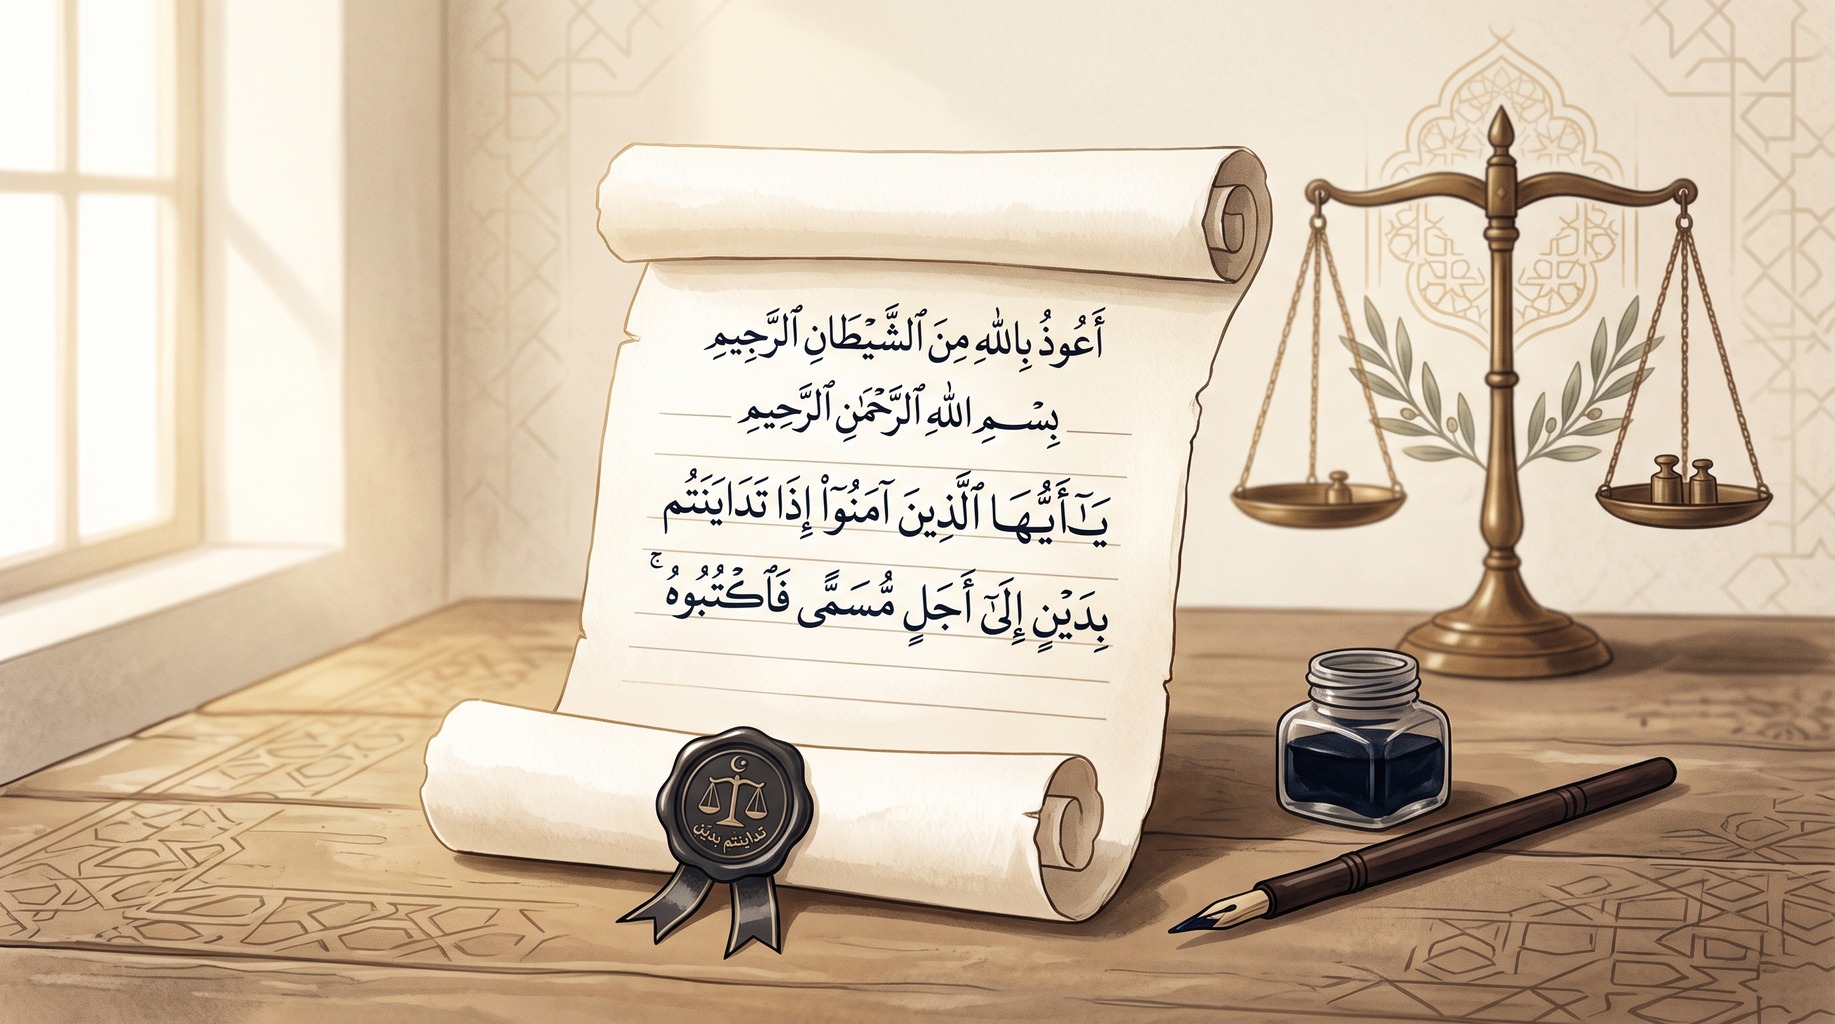 أَعُوذُ بِاللَّهِ مِنَ ٱلشَّيْطَانِ ٱلرَّجِيمِ
بِسْمِ اللَّهِ ٱلرَّحْمَٰنِ ٱلرَّحِيمِ
يَـٰٓأَيُّهَا ٱلَّذِينَ آمَنُوٓا۟ إِذَا تَدَايَنَتُم
بِدَيْنٍ إِلَىٰٓ أَجَلٍ مُّسَمًّى فَٱكْتُبُوهُ ۚ
تداينتم بدين